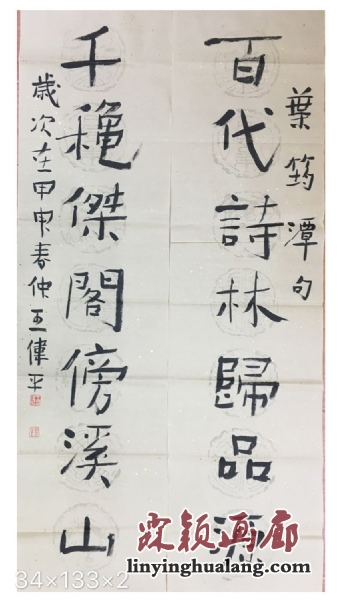 葉筠潭句
百代詩林歸品
千穐傑閣傍溪山
歲次在甲申春仲王偉平
霖颖画廊
linyinghualang.com
34×133×2